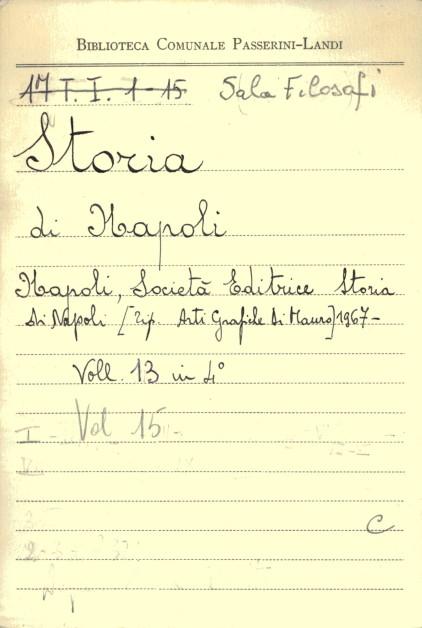 BIBLIOTECA COMUNALE PASSERINI-LANDI
17 T. I. 1-15 Sala Filosofi
Storia
di Napoli
Napoli, Società Editrice Storia
di Napoli [Tip. Arti Grafiche di Mauro] 1967-
Voll. 13 in 4°
I - Vol 15
C